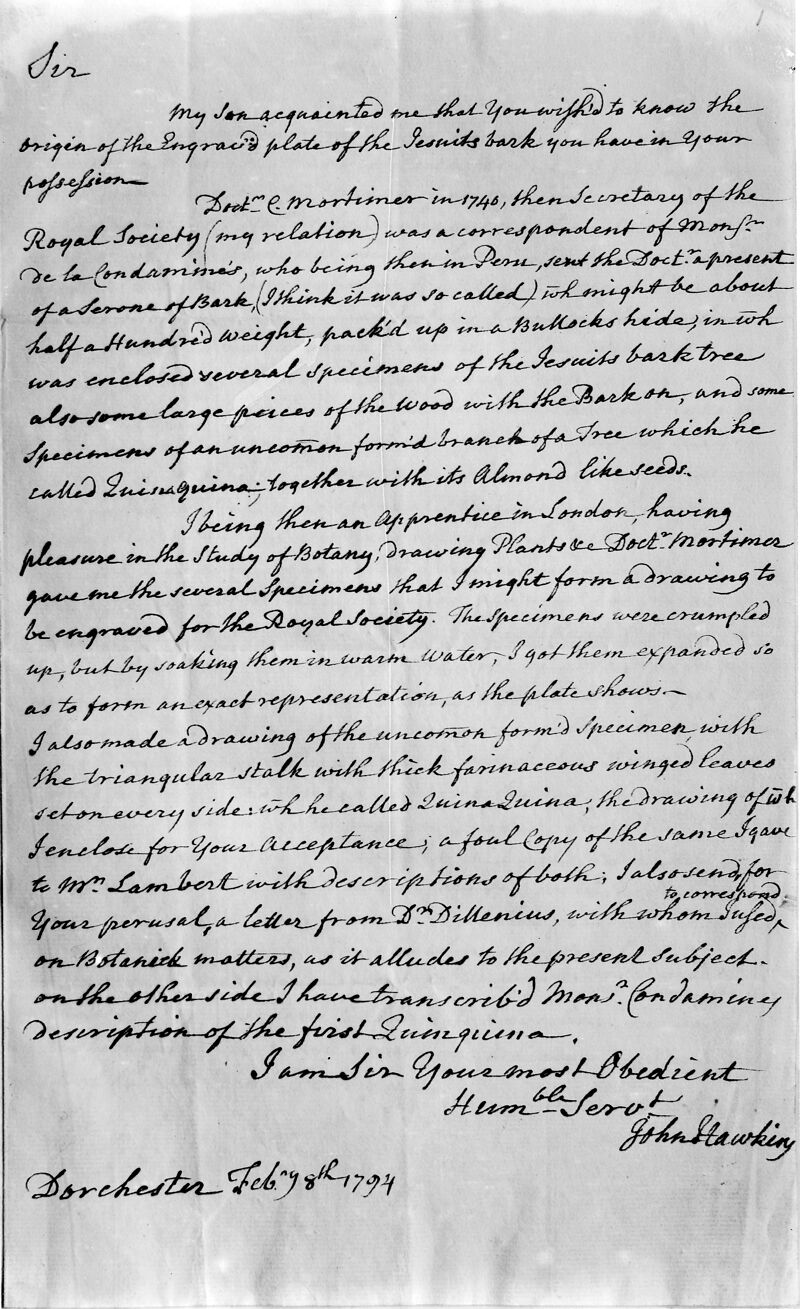 1
Sir
My Son acquainted me that You wish'd to know the
origin of the Engrav'd plate of the Jesuits bark you have in Your
possession—
Doctr. C Mortimer in 1740, then Secretary of the
Royal Society (my relation) was a correspondent of Monsr.
de la Condamine's, who being then in Peru, sent the Doctr. a present
of a Serone of Bark, (I think it was so called) wh might be about
half a Hundred weight, pack'd up in a Bullocks hide; in wh
was enclosed several specimens of the Jesuits bark tree
also some large peices of the Wood with the Bark on, and some
Specimens of an uncom̄on form'd branch of a Tree which he
called Quinaquina; together with its Almond like seeds.
I being then an Apprentice in London, having
pleasure in the Study of Botany, drawing Plants &c Doctr. Mortimer
gave me the several Specimens that I might form a drawing to
be engraved for the Royal Society. The Specimens were crumpled
up, but by soaking them in warm water, I got them expanded so
as to form an exact representation, as the plate shows.—
I also made a drawing of the uncom̄on form'd Specimen, with
the triangular stalk with thick farinaceous winged leaves
set on every side: wh he called Quina Quina, the drawing of wh
I enclose for Your Acceptance; a foul Copy of the same I gave
to Mr. Lambert with descriptions of both; I also send, for
to correspond
Your perusal, a letter from Dr. Dillenius, with whom I used,^
on Botanick matters, as it alludes to the present Subject.
on the other side I have transcrib'd Monsr. Condamines
description of the first Quinquina.
I am Sir Your most Obedient
Humble Servt
John Hawkins
Dorchester Febry 8th 1794